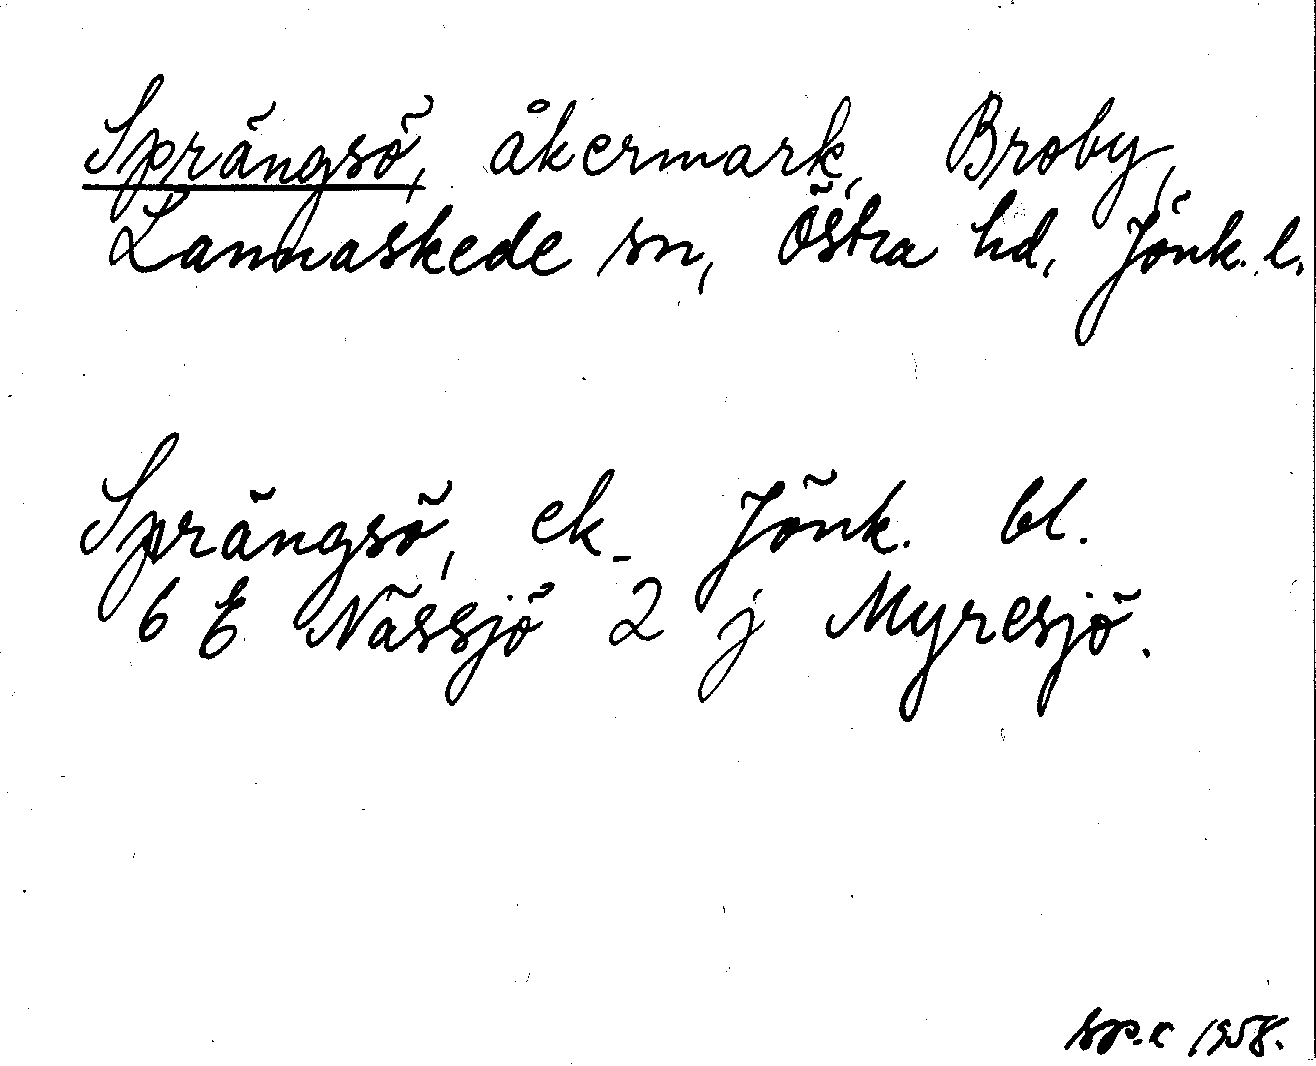 Sprängsö, åkermark, Broby,
Lannaskede sn, Östra hd, Jönk. l.
Sprängsö, ek. Jönk. bl.
6 E Nässjö 2 j Myresjö.
1958.